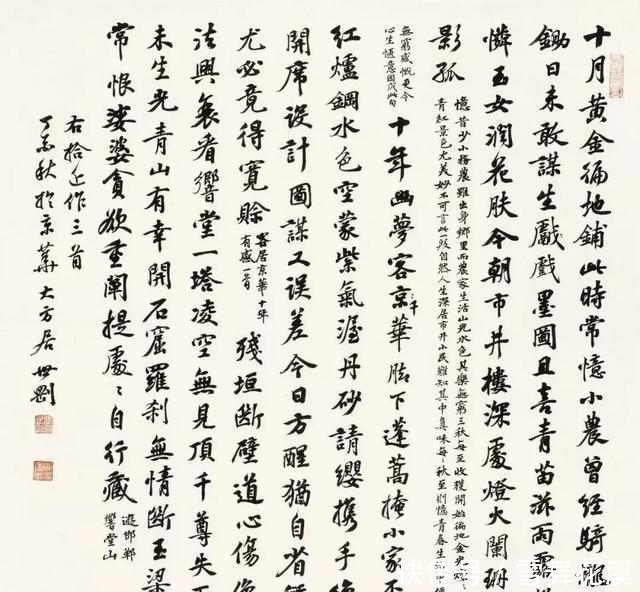 十月黃金徧地鋪此時常憶小農曾經騎
鋤日未敢謀生戲戲墨圖且喜青苗滋雨
憐玉女潤花膚今朝市井樓深處燈火闌珊
影孤
憶昔少小務農雖出身鄉里而農家生活山光水色其樂無窮三秋每至收穫開始徧地金光
青紅景色尤美妙不可言此一段自然人生深居市井小民難知其中真味每々秋至則憶青春生
無窮感慨更令
心生愜意因成此句
十年幽夢客京華階下蓬蒿掩小家
紅爐鋼水色空蒙紫氣渥丹砂請纓攜手
開席設計圖謀又誤差今日方醒猶自省
尤必竟得寬賒
客居京華十年
有感一首
殘垣斷壁道心傷
法興衰看響堂一塔凌空無見頂千尊失
未生光青山有幸開石窟羅剎無情斷玉梁
常恨娑婆貪欲重闡提處々自行藏
遊邯鄲
響堂山
右拾近作三首
丁亥秋於京華大方居世劉
快傳號